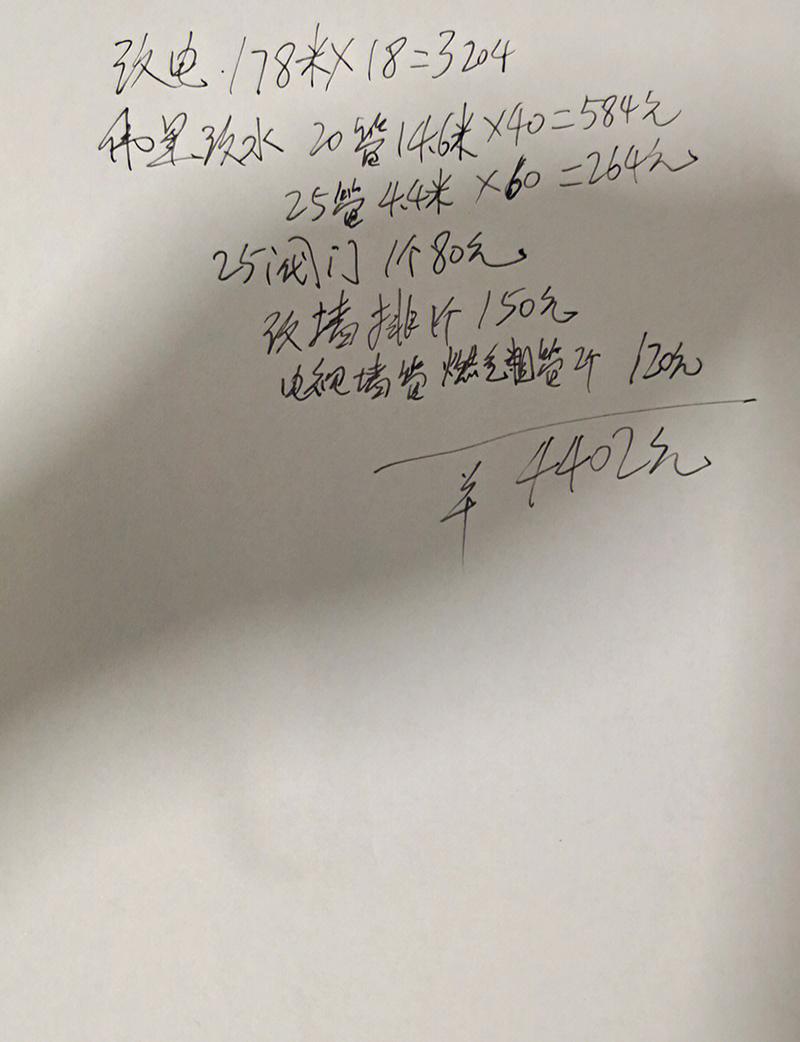 改电.178米×18=3204
伟星改水 20管14.6米×40=584元
25管4.4米×60=264元
25阀门1个80元
改墙排1个150元
电视墙管燃气粗管2个 120元
羊 4402元